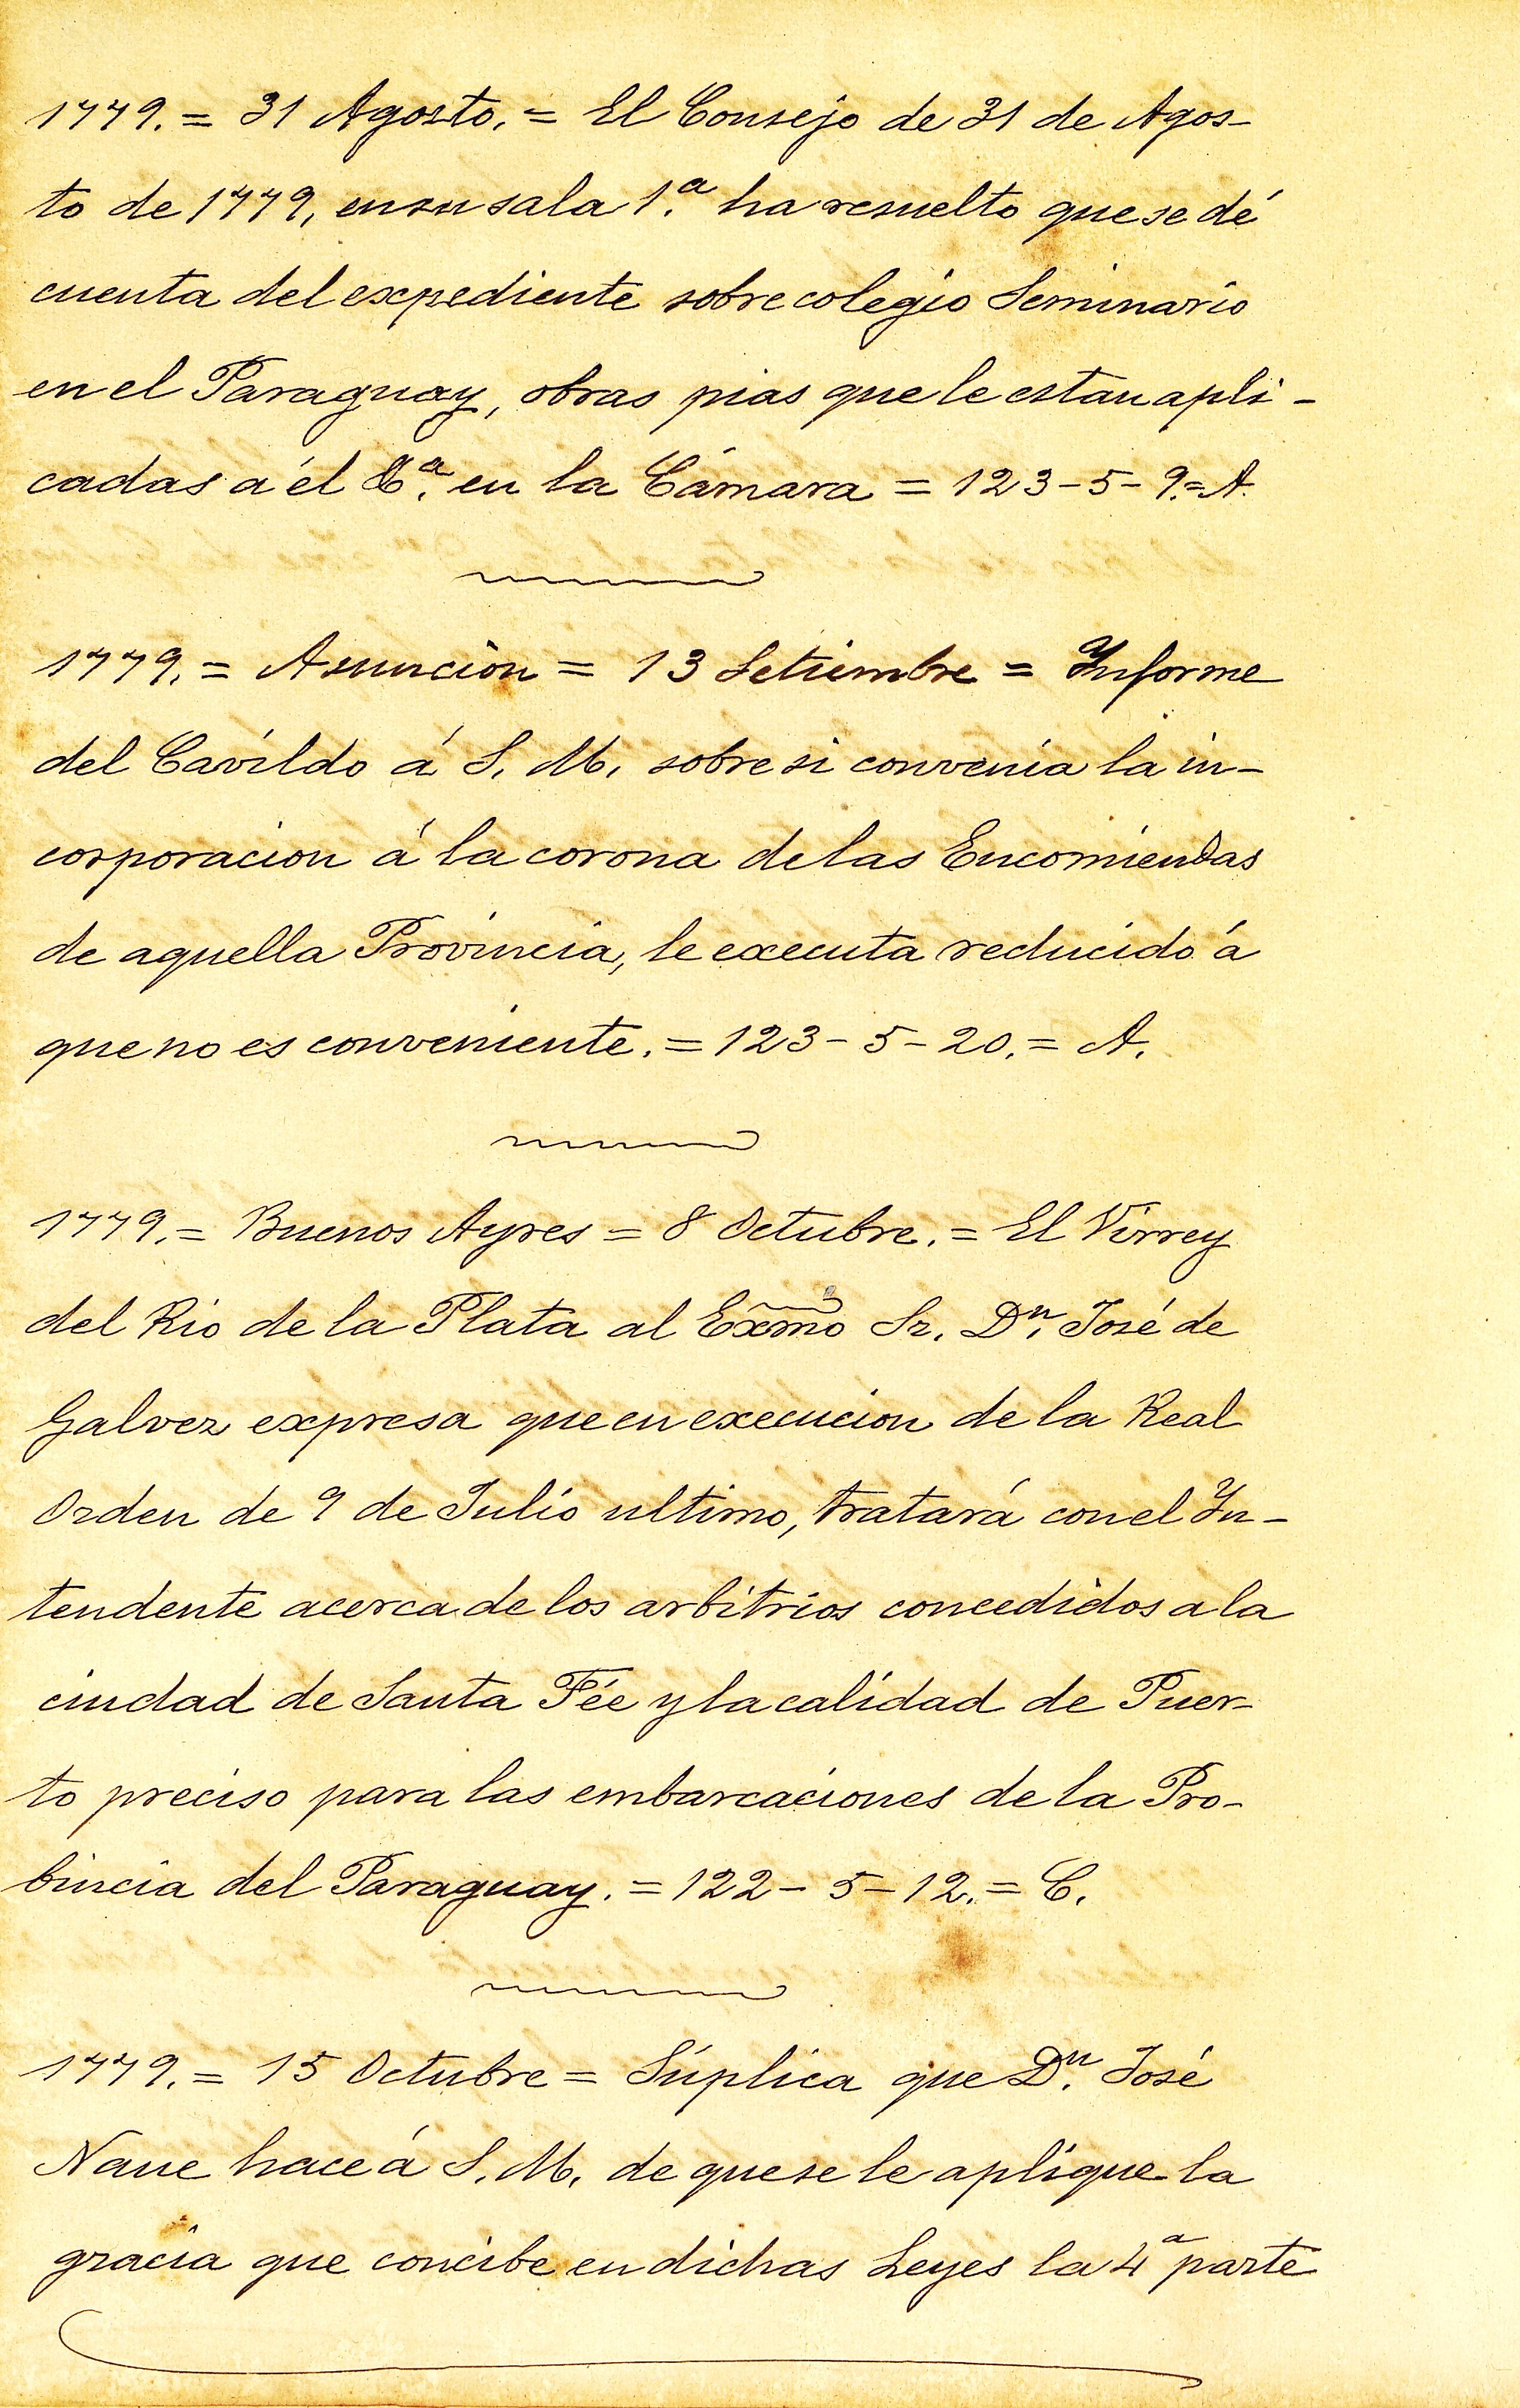 1779. = 31 Agosto. = El Consejo de 31 de Agos-
to de 1779, en su sala 1.ª ha resuelto que se dé
cuenta del expediente sobre colegio Seminario
en el Paraguay, obras pias que le estan apli-
cadas a él &.ª en la Cámara = 123-5-9.=A.
1779. = Asuncion = 13 Setiembre = Informe
del Cavildo á S. M. sobre si convenia la in-
corporacion á la corona de las Encomiendas
de aquella Provincia, le executa reducido á
que no es conveniente. = 123-5-20. = A.
1779. = Buenos Ayres = 8 Octubre. = El Virrey
del Rio de la Plata al Exmo Sr. Dn. José de
Galvez expresa que en execucion de la Real
Orden de 9 de Julio ultimo, tratará con el In-
tendente acerca de los arbitrios concedidos a la
ciudad de Santa Fée y la calidad de Puer-
to preciso para las embarcaciones de la Pro-
bincia del Paraguay. = 122-5-12. = C.
1779. = 15 Octubre = Súplica que Dn. José
hace á S. M. de que se le aplique la
gracia que concibe en dichas Leyes la 4ª parte